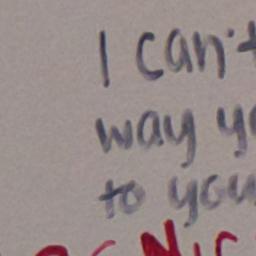 I can't
way yo
to you